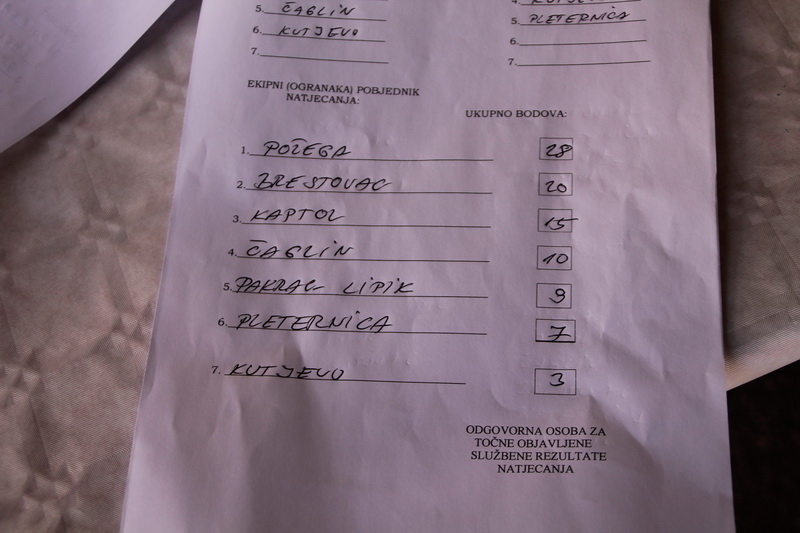 5. ČAGLIN
5. PLETERNICA
6. KUTJEVO
6.
7.
7.
EKIPNI (OGRANAKA) POBJEDNIK
NATJECANJA:
UKUPNO BODOVA:
1. POŽEGA 28
2. BRESTOVAC 20
3. KAPTOL 15
4. ČAGLIN 10
5. PAKRAC LIPIK 9
6. PLETERNICA 7
7. KUTJEVO 3
ODGOVORNA OSOBA ZA
TOČNE OBJAVLJENE
SLUŽBENE REZULTATE
NATJECANJA